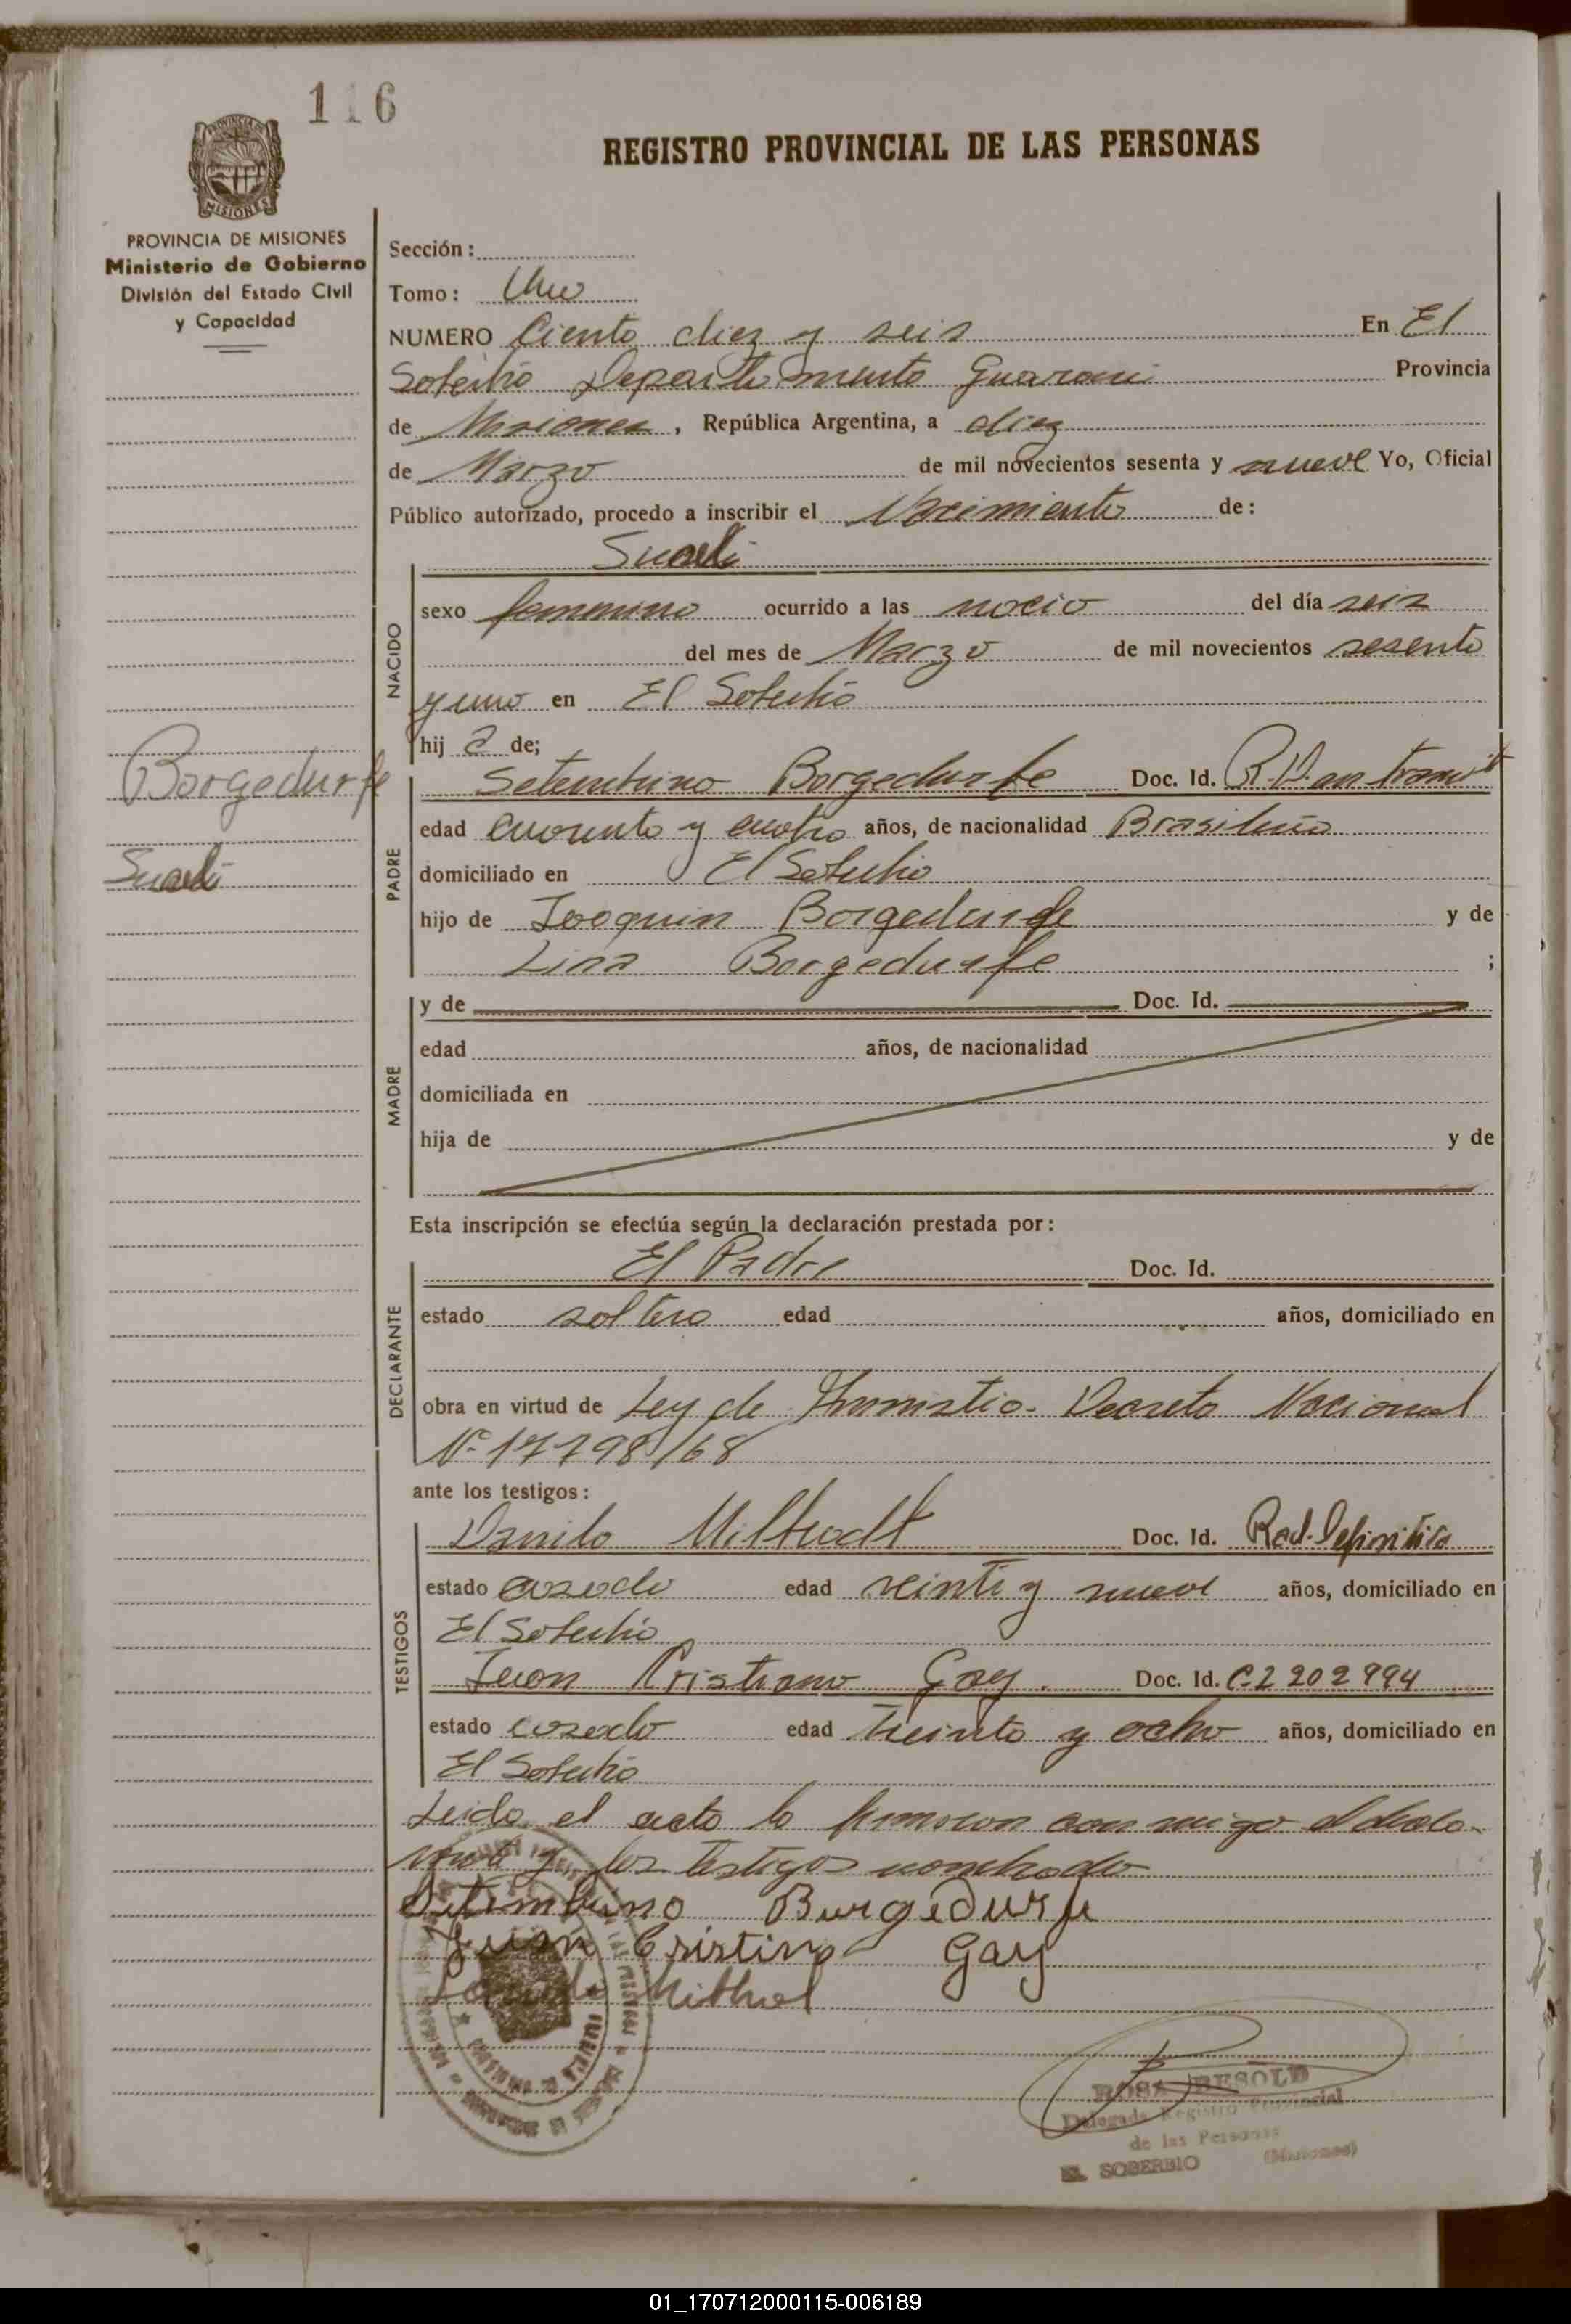 116
REGISTRO PROVINCIAL DE LAS PERSONAS
PROVINCIA DE MISIONES
MISIONES
PROVINCIA DE MISIONES
Ministerio de Gobierno
División del Estado Civil
y Capacidad
Sección:
Tomo: Uno
NUMERO Ciento diez y seis En El
Soberbio Departamento Guarani Provincia
de Misiones, República Argentina, a diez
de Marzo de mil novecientos sesenta y nueve Yo, Oficial
Público autorizado, procedo a inscribir el Nacimiento de:
Sueli
NACIDO
sexo femenino ocurrido a las del día seis
del mes de Marzo de mil novecientos sesenta
y uno en El Soberbio
hij a de;
Borgedurfe
Sueli
PADRE
Setembrino Borgedurfe Doc. Id. R.D. en tramit
edad cuarenta y cuatro años, de nacionalidad Brasileño
domiciliado en El Soberbio
hijo de Joaquin Borgedurfe y de
Lina Borgedurfe ;
MADRE
y de Doc. Id.
edad años, de nacionalidad
domiciliada en
hija de y de
Esta inscripción se efectúa según la declaración prestada por:
DECLARANTE
El Padre Doc. Id.
estado soltero edad años, domiciliado en
obra en virtud de Ley de Decreto Nacional
Nº 17798/68
ante los testigos:
TESTIGOS
Danilo Miltradt Doc. Id. Rad. Definitiva
estado casado edad veinte y nueve años, domiciliado en
El Soberbio
Juan Cristiano Gay. Doc. Id. C.2 202 994
estado casado edad treinta y ocho años, domiciliado en
El Soberbio
Leida el acta la firmaron con migo el decla-
rante y los testigos nombrados
Setembrino Burgedurfe
Juan Cristino Gay
ROSA BESOLD
Delegada Registro Provincial
de las Personas
EL SOBERBIO (Misiones)
01_170712000115-006189